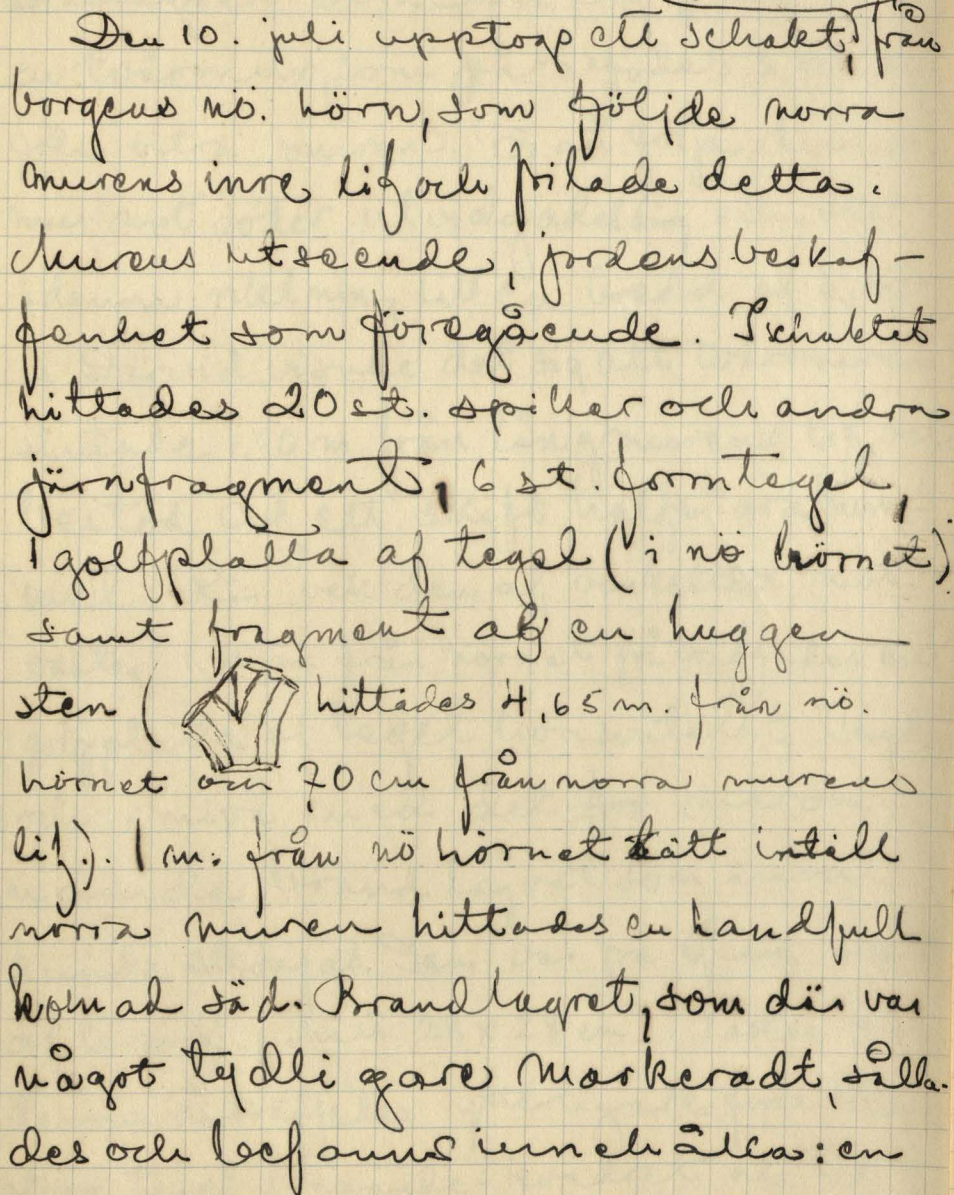 Den 10. juli upptogs ett schakt, från
borgens nö. hörn, som följde norra
murens inre lif och frilade detta.
Murens utseende, jordens beskaf-
fenhet som föregående. I schaktet
hittades 20 st. spikar och andra
järnfragment, 6 st. formtegel,
1 golfplatta af tegel (i nö hörnet)
samt fragment af en huggen
sten ( hittades 4,65 m. från nö.
hörnet 70 cm från norra murens
lif). 1 m. från nö hörnet tätt intill
norra muren hittades en handfull
säd. Brandlagret, som där var
något tydligare markeradt, sålla-
des och befanns innehålla: en